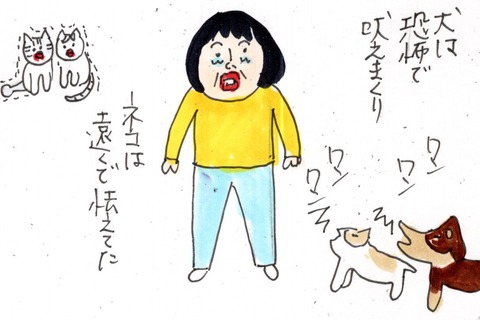 犬は
恐怖で
吠えまくり
ワン
ワン
ワン
ワン
ネコは
遠くで怯えてた